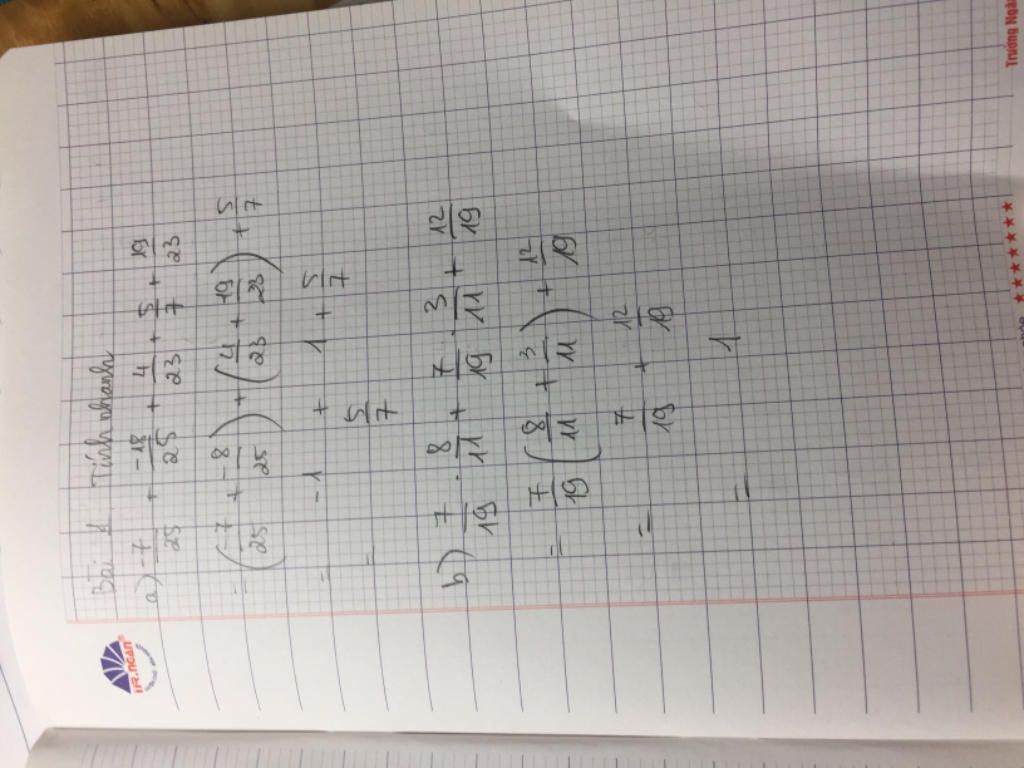 Bài 1 Tính nhanh
a) -7/25 + -18/25 + 4/23 + 5/7 + 19/23
= (-7/25 + -8/25) + (4/23 + 19/23) + 5/7
= -1 + 1 + 5/7
= 5/7
b) 7/19 . 8/11 + 7/19 . 3/11 + 12/19
= 7/19 (8/11 + 3/11) + 12/19
= 7/19 + 12/19
= 1
TR.NGAN®
Trường Ngân
★★★★★★★